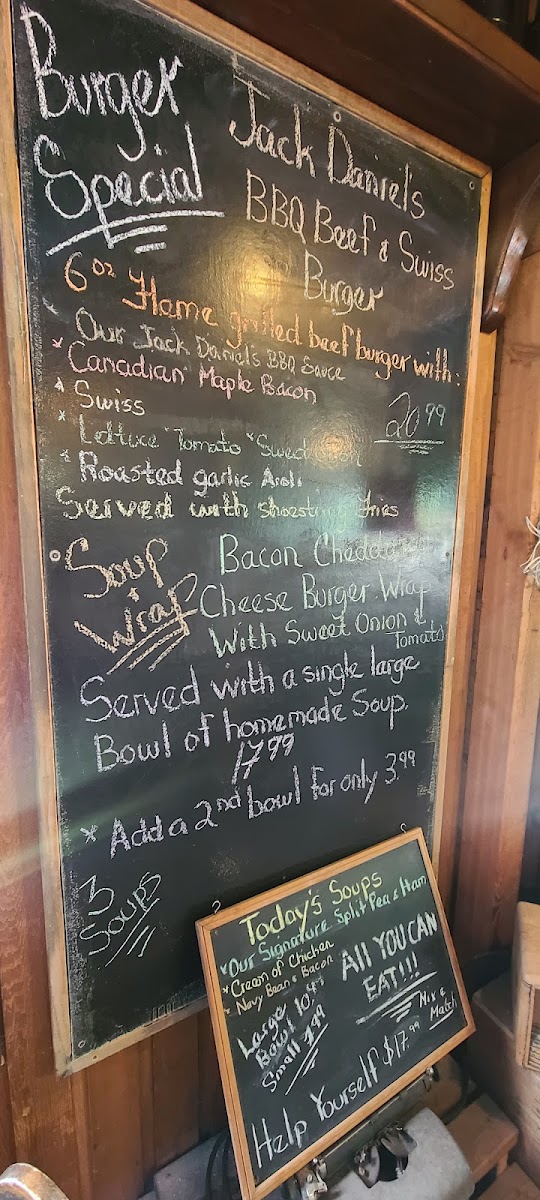 Burger
Special
Jack Daniel's
BBQ Beef & Swiss
Burger
6oz Flame grilled beef burger with:
* Our Jack Daniel's BBQ Sauce
* Canadian Maple Bacon
* Swiss
20.99
* Lettuce *Tomato *Sweet
* Roasted garlic Aioli
Served with shoestring fries
Soup
+
Wrap
Bacon Cheddar
Cheese Burger Wrap
With Sweet Onion &
Tomato
Served with a single large
Bowl of homemade Soup.
17.99
* Add a 2nd bowl for only 3.99
3
Soups
Today's Soups
*Our Signature Split Pea & Ham
*Cream of Chicken
* Navy Bean & Bacon
Large
Bowl
Small 7.99
All YOU CAN
EAT!!!
Mix &
Match
Help Yourself $17.99